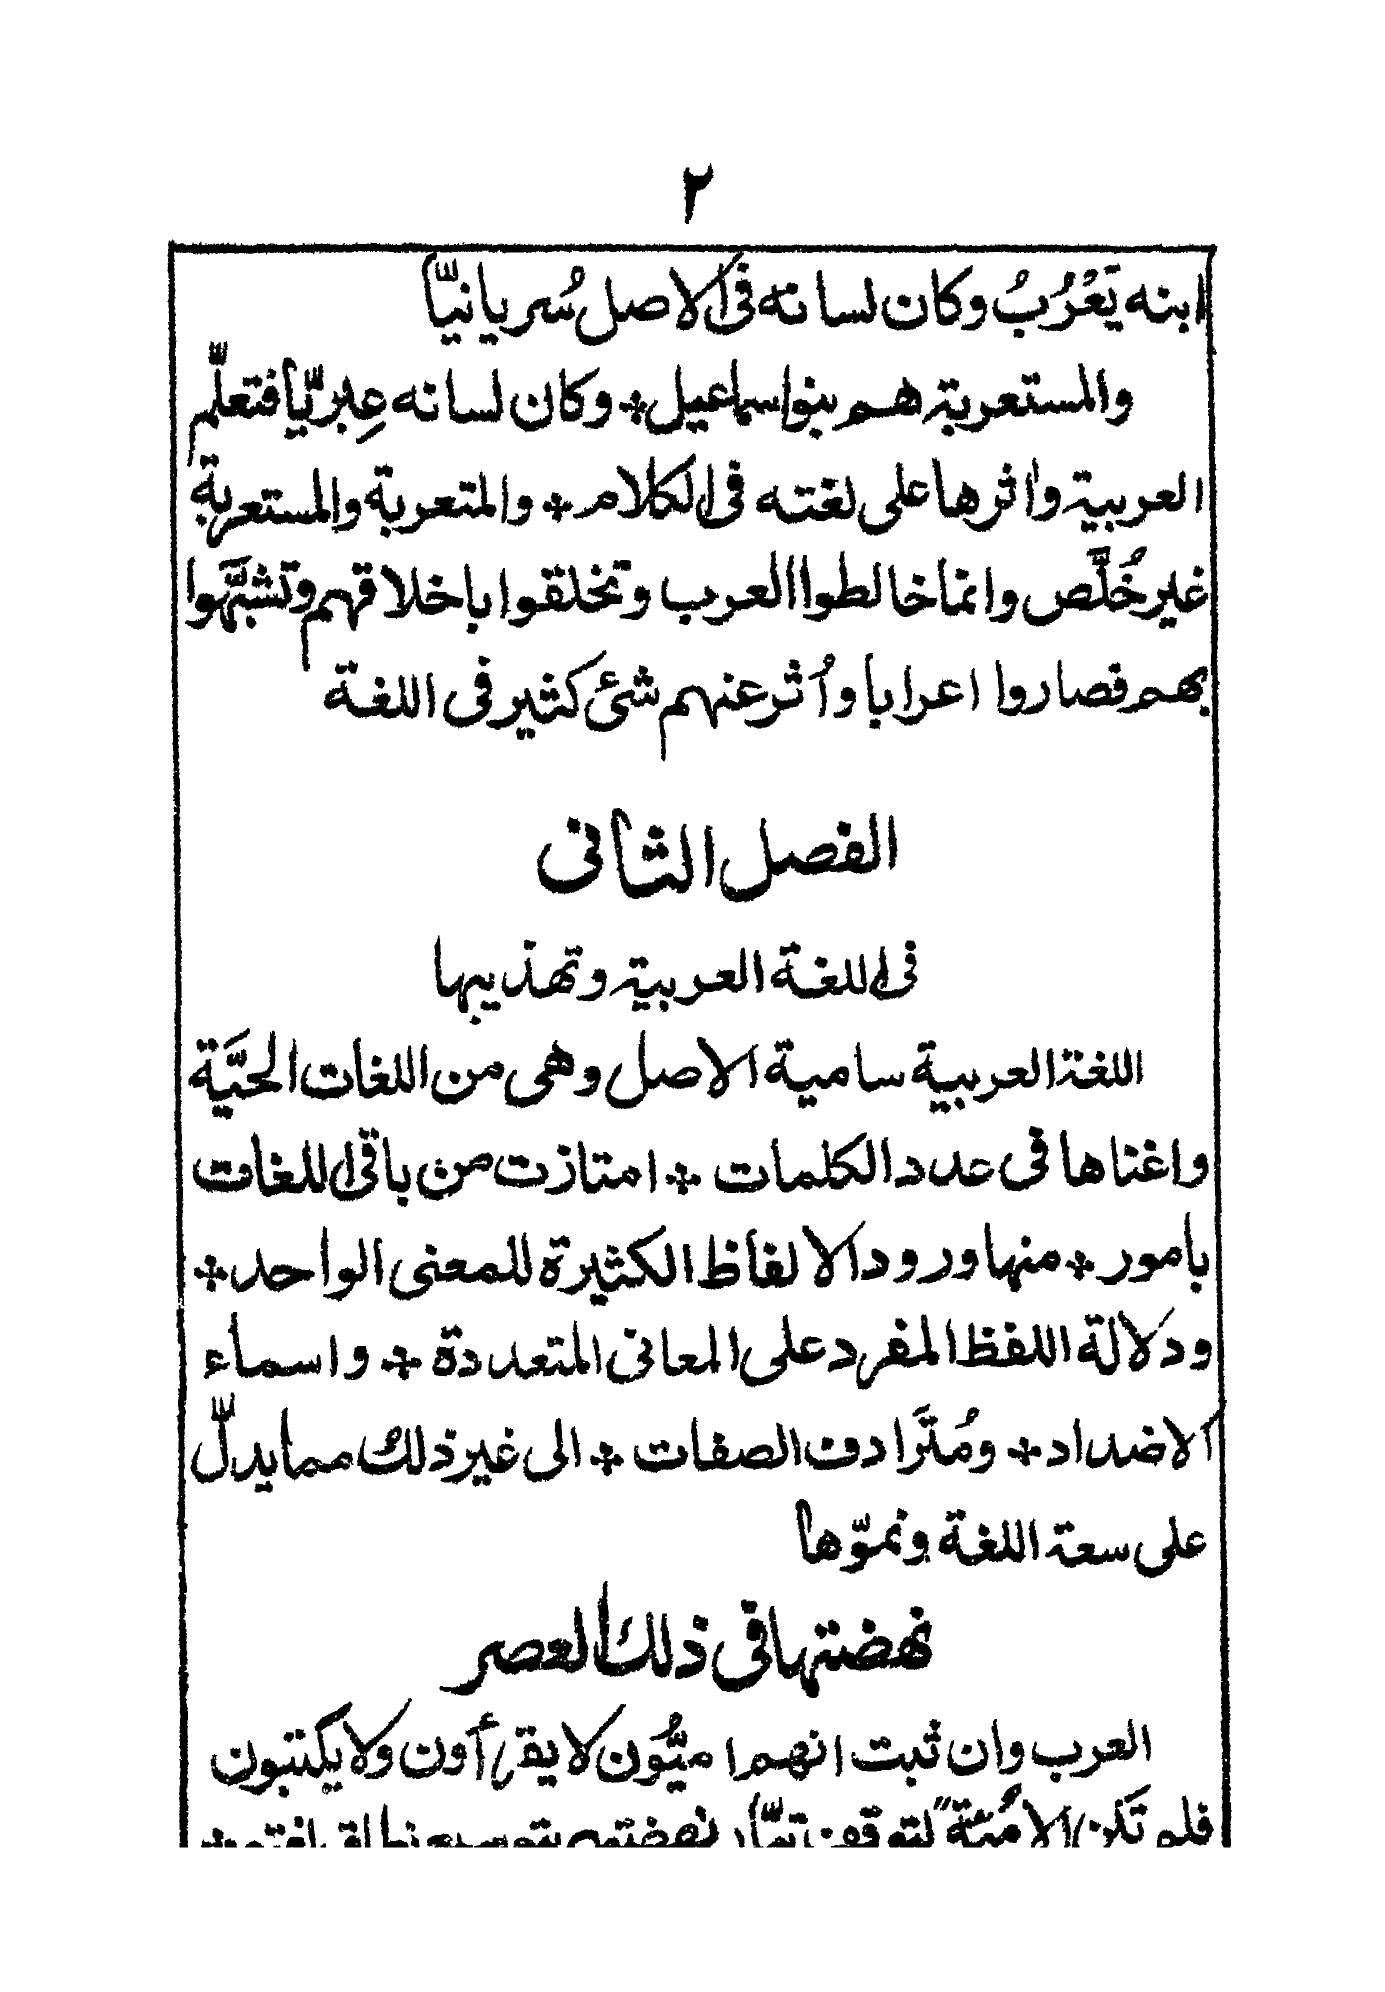 ٢
ابنه يَعْرُبُ وكان لسانه فى الاصل سُريانيّاً
والمستعربة هم بنو اسماعيل ✣ وكان لسانه عِبرّياً فتعلّم
العربية واثرها على لغته فى الكلام ✣ والمتعربة والمستعربة
غير خُلَّص وانما خالطوا العرب وتخلقوا باخلاقهم وتشبَّهوا
بهم فصاروا اعرابا وأُثر عنهم شئ كثير فى اللغة
الفصل الثانى
فى اللغة العربية وتهذيبها
اللغة العربية سامية الاصل وهى من اللغات الحيَّة
واغناها فى عدد الكلمات ✣ امتازت من باقى اللغات
بامور ✣ منها ورود الالفاظ الكثيرة للمعنى الواحد ✣
ودلالة اللفظ المفرد على المعانى المتعددة ✣ واسماء
الاضداد ✣ ومُتَرادف الصفات ✣ الى غير ذلك مما يدلّ
على سعة اللغة ونموّها
نهضتها فى ذلك العصر
العرب وان ثبت انهم اميُّون لا يقرأون ولا يكتبون
فلم تَكن الامُيَّة لتوقف تيّار نهضتهم بتوسيع نطاق لغتهم